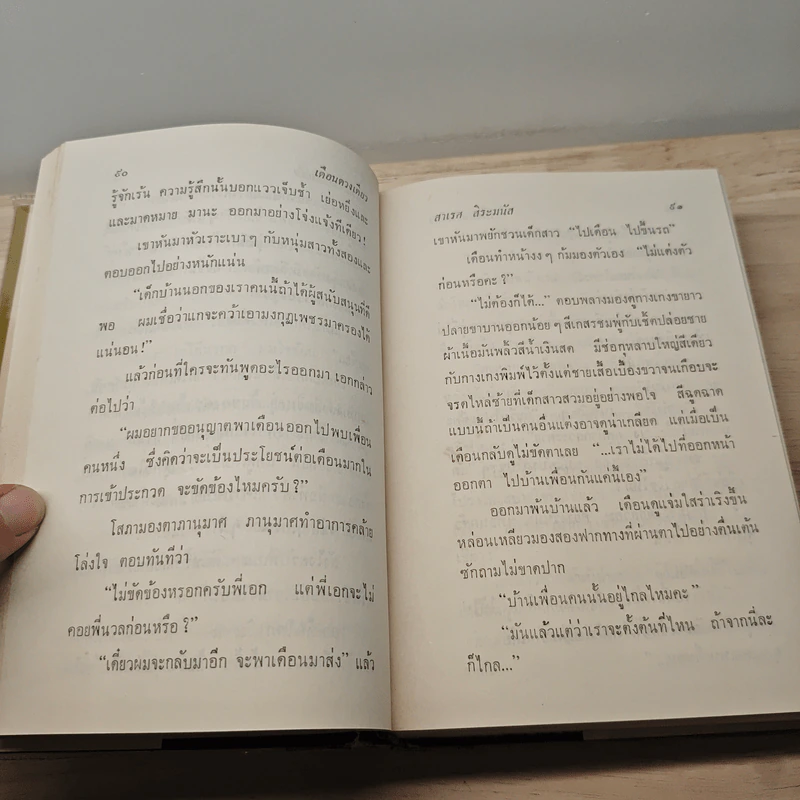 ๙๐ เดือนดวงเดียว
รู้จักเร้น ความรู้สึกนั้นบอกแววเจ็บช้ำ เย่อหยิ่งและ
และมาดหมาย มานะ ออกมาอย่างโจ่งแจ้งทีเดียว!
เขาหันมาหัวเราะเบาๆ กับหนุ่มสาวทั้งสองและ
ตอบออกไปอย่างหนักแน่น
“เด็กบ้านนอกของเราคนนี้ถ้าได้ผู้สนับสนุนที่ดี
พอ ผมเชื่อว่าแกจะคว้าเอามงกุฎเพชรมาครองได้
แน่นอน!”
แล้วก่อนที่ใครจะทันพูดอะไรออกมา เอกกล่าว
ต่อไปว่า
“ผมอยากขออนุญาตพาเดือนออกไปพบเพื่อน
คนหนึ่ง ซึ่งคิดว่าจะเป็นประโยชน์ต่อเดือนมากใน
การเข้าประกวด จะขัดข้องไหมครับ?”
โสภามองตาภานุมาศ ภานุมาศทำอาการคล้าย
โล่งใจ ตอบทันทีว่า
“ไม่ขัดข้องหรอกครับพี่เอก แต่พี่เอกจะไม่
คอยพี่นวลก่อนหรือ?”
“เดี๋ยวผมจะกลับมาอีก จะพาเดือนมาส่ง” แล้ว
สาเรศ สิระมนัส ๙๑
เขาหันมาพยักชวนเด็กสาว “ไปเดือน ไปขึ้นรถ”
เดือนทำหน้างงๆ ก้มมองตัวเอง “ไม่แต่งตัว
ก่อนหรือคะ?”
“ไม่ต้องก็ได้...” ตอบพลางมองดูกางเกงขายาว
ปลายขาบานออกน้อยๆ สีเกสรชมพู่กับเช็ตปล่อยชาย
ผ้าเนื้อมันพลิ้วสีน้ำเงินสด มีช่อกุหลาบใหญ่สีเดียว
กับกางเกงพิมพ์ไว้ตั้งแต่ชายเสื้อเบื้องขวาจนเกือบจะ
จรดไหล่ซ้ายที่เด็กสาวสวมอยู่อย่างพอใจ สีฉูดฉาด
แบบนี้ถ้าเป็นคนอื่นแต่งอาจดูน่าเกลียด แต่เมื่อเป็น
เดือนกลับดูไม่ขัดตาเลย “...เราไม่ได้ไปที่ออกหน้า
ออกตา ไปบ้านเพื่อนกันแค่นี้เอง”
ออกมาพ้นบ้านแล้ว เดือนดูแจ่มใสร่าเริงขึ้น
หล่อนเหลียวมองสองฟากทางที่ผ่านตาไปอย่างตื่นเต้น
ซักถามไม่ขาดปาก
“บ้านเพื่อนคนนั้นอยู่ไกลไหมคะ”
“มันแล้วแต่ว่าเราจะตั้งต้นที่ไหน ถ้าจากนี่ละ
ก็ไกล...”